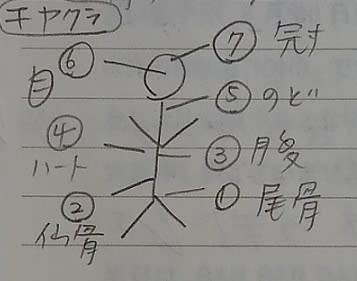 チャクラ
⑥
目
⑦
⑤ のど
④
ハート
③ 腹
②
仙骨
① 尾骨